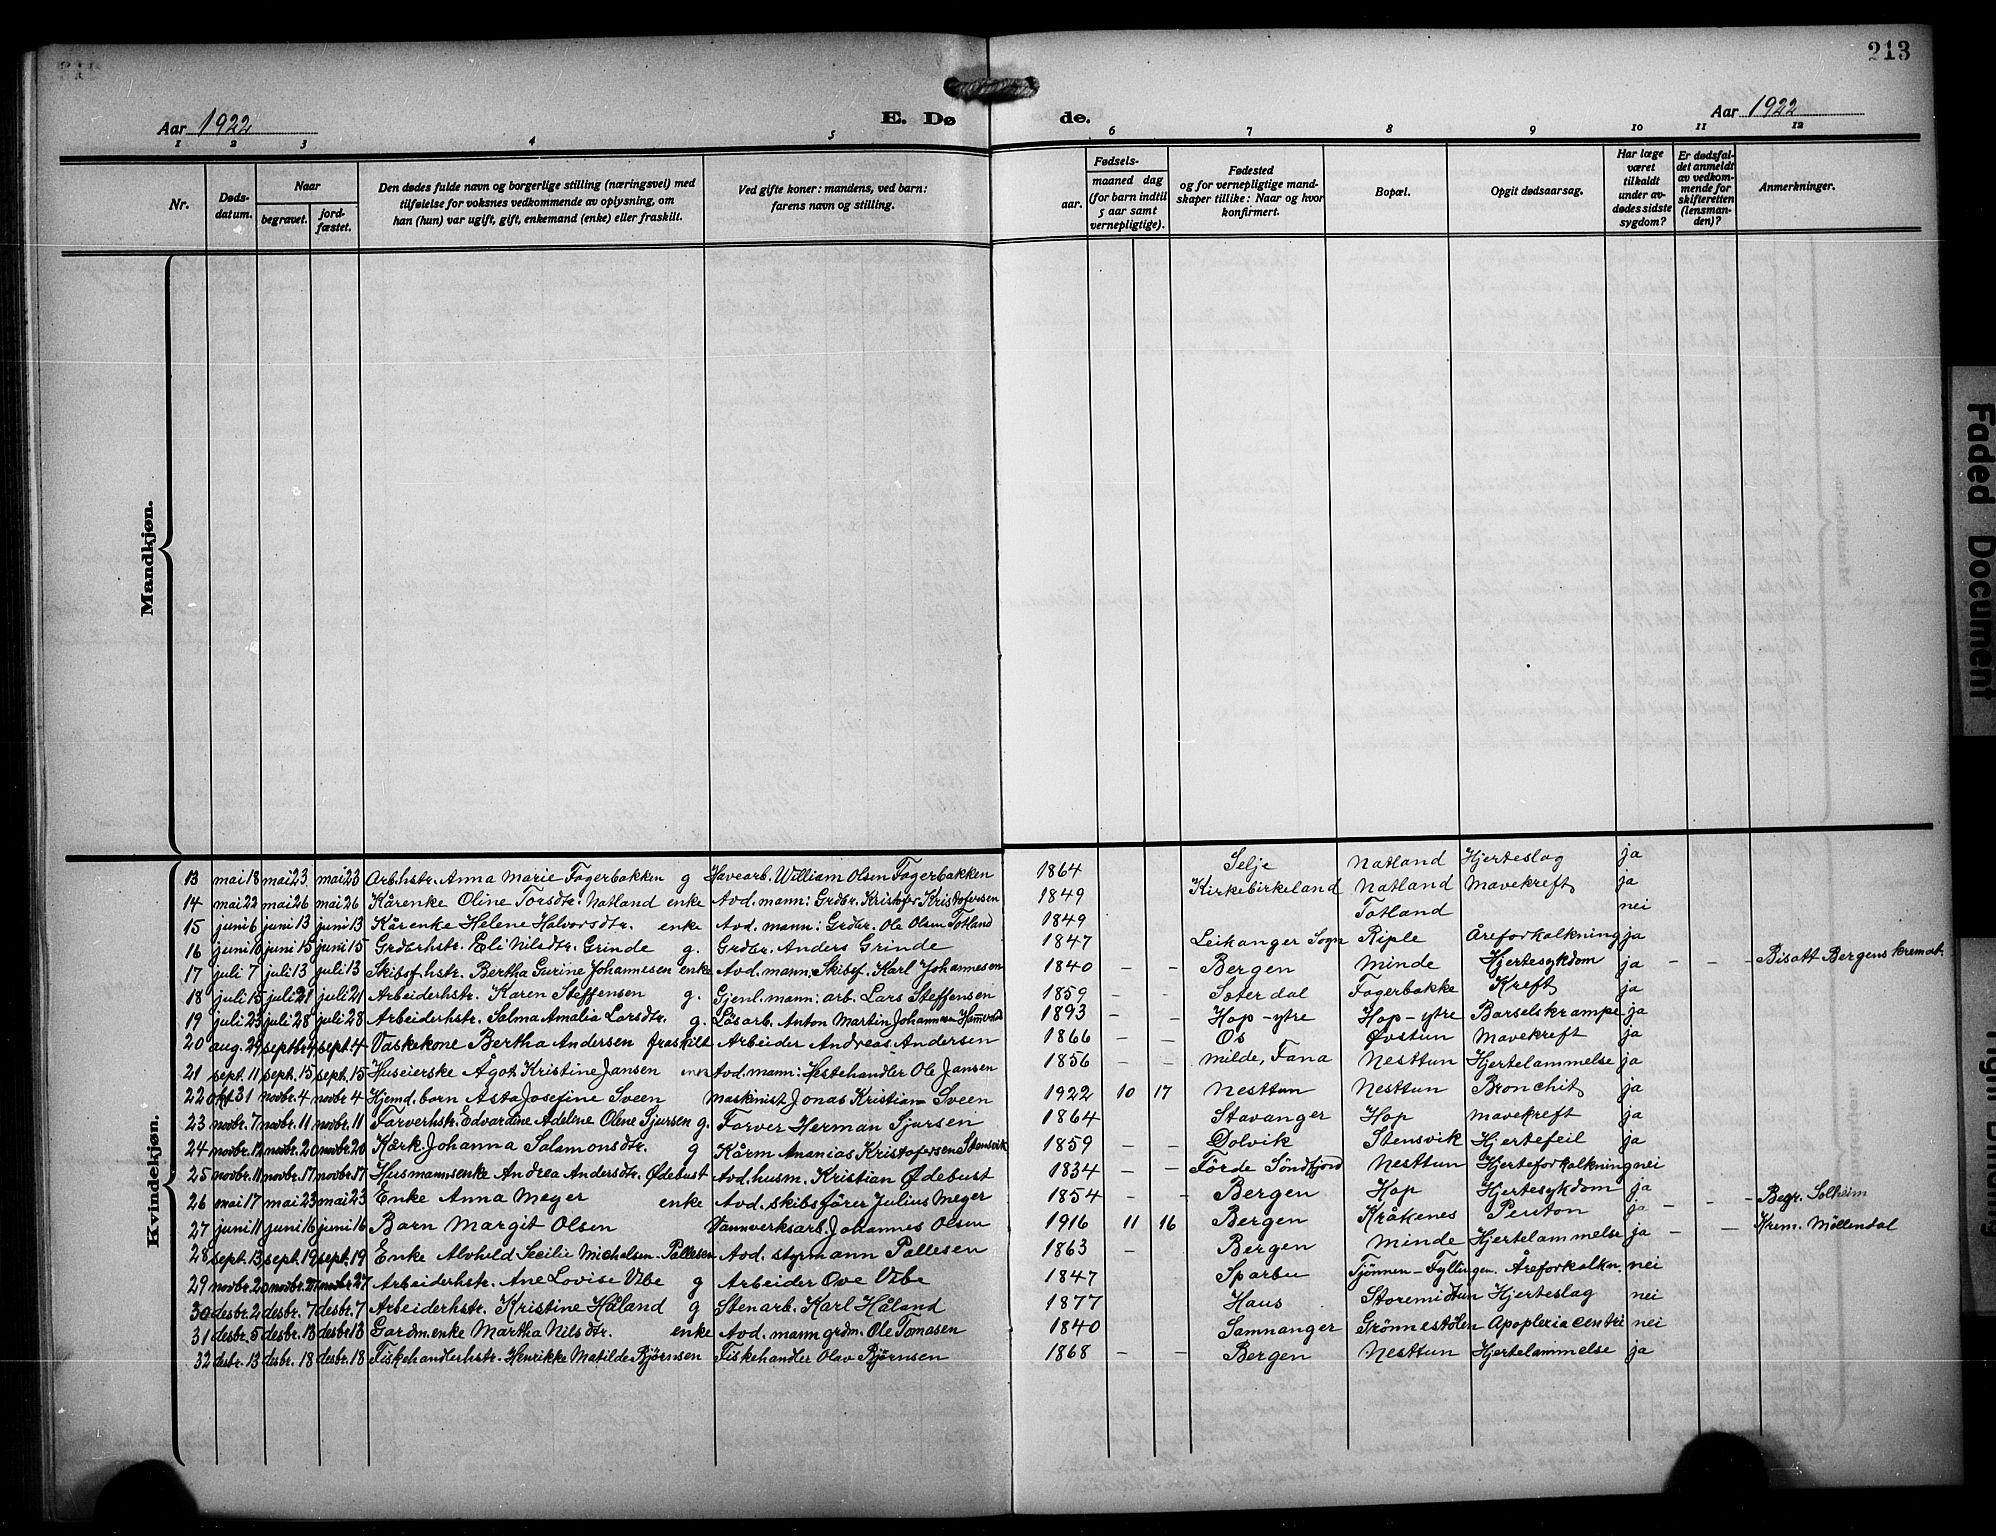 213
Aar 1922
E. Dø de.
Aar 1922
1 2 3 4 5 6 7 8 9 10 11 12
Nr.
Døds-datum.
Naar
begravet.
jord-fæstet.
Den dødes fulde navn og borgerlige stilling (næringsvei) med tilføielse for voksnes vedkommende av oplysning, om han (hun) var ugift, gift, enkemand (enke) eller fraskilt.
Ved gifte koner: mandens, ved barn: farens navn og stilling.
Fødsels-
aar.
maaned dag (for barn indtil 5 aar samt vernepligtige).
Fødested og for vernepligtige mandskaper tillike: Naar og hvor konfirmert.
Bopæl.
Opgit dødsaarsag.
Har læge været tilkaldt under avdødes sidste sygdom?
Er dødsfaldet anmeldt av vedkommende for skifteretten (lensmanden)?
Anmerkninger.
Mandkjøn.
Kvindekjøn.
13 mai 18 mai 23 mai 23 Arb.hstr. Anna Marie Fagerbakken g Havearb. William Olsen Fagerbakken 1864 Selje Natland Hjerteslag ja
14 mai 22 mai 26 mai 26 Kårenke Oline Torsdtr. Natland enke Avd. mann: Grdbr. Kristofer Kristofersen 1849 Kirkebirkeland Natland Mavekreft ja
15 juni 6 juni 13 juni 13 Kårenke Helene Halvorsdtr. enke Avd. mann: Grdbr. Ole Olsen Totland 1849 Totland nei
16 juni 10 juni 15 juni 15 Grdbrhstr. Eli Nilsdtr. Grinde g. Grdbr. Anders Grinde 1847 Leikanger Sogn Riple Åreforkalkning ja
17 juli 7 juli 13 juli 13 Skibsf.hstr. Bertha Gurine Johannesen enke Avd. mann: Skibsf. Karl Johannesen 1840 – – Bergen Minde Hjertesykdom ja – – – Bisatt Bergens kremat.
18 juli 15 juli 21 juli 21 Arbeiderhstr. Karen Steffensen g. Gjenl. mann: arb. Lars Steffensen 1859 – – Sæterdal Fagerbakke Kreft ja
19 juli 23 juli 28 juli 28 Arbeiderhstr. Selma Amalia Larsdtr. g. Løsarb. Anton Martin Johannesen 1893 – – Hop-ytre Hop-ytre Barselskrampe ja
20 aug. 29 septbr 4 sept. 4 Vaskekone Bertha Andersen fraskilt Arbeider Andreas Andersen 1866 – – Os Øvstun Mavekreft ja
21 sept. 11 sept. 15 sept. 15 Huseierske Ågot Kristine Jansen enke Avd. mann: Hestehandler Ole Jansen 1856 – – Milde, Fana Nesttun Hjertelammelse ja
22 okt 31 novbr. 4 novbr 4 Hjemd. barn Asta Josefine Sveen Maskinist Jonas Kristian Sveen 1922 10 17 Nesttun Nesttun Bronchit ja
23 novbr. 7 novbr. 11 novbr. 11 Farverhstr. Edvardine Adelene Oline Sjursen g. Farver Herman Sjursen 1864 Stavanger Hop Mavekreft ja
24 novbr. 12 novbr. 20 novbr. 20 Kårk Johanna Salamonsdtr. g Kårm Ananias Kristofersen Stensvik 1859 – – Dolvik Stensvik Hjertefeil ja
25 novbr. 11 novbr. 17 novbr. 17 Husmannsenke Andrea Andersdtr. Ødebust Avd. husm. Kristian Ødebust 1834 – – Førde Søndfjord Nesttun Hjerteforkalkning nei
26 mai 17 mai 23 mai 23 Enke Anna Meyer enke Avd. skibsfører Julius Meyer 1854 – – Bergen Hop Hjertesykdom ja – – Begr. Solheim
27 juni 11 juni 16 juni 16 Barn Margit Olsen Vannverksarb. Johannes Olsen 1916 11 16 Bergen Kråkenes ja – – Krem. Møllendal
28 sept. 13 sept. 19 sept. 19 Enke Alvhild Secilie Michelsen Pallesen Avd. styrmann Pallesen 1863 – Bergen Minde Hjertelammelse ja – –
29 novbr. 20 novbr. 27 novbr. 27 Arbeiderhstr. Ane Lovise Vibe g Arbeider Ove Vibe 1847 Sparbu Tjønnen–Fyllingen. Åreforkalkn. nei
30 desbr. 2 desbr. 7 desbr. 7 Arbeiderhstr. Kristine Håland g Stenarb. Karl Håland 1877 Haus Storemidtun Hjerteslag nei
31 desbr. 5 desbr. 13 desbr. 13 Gardm.enke Martha Nilsdtr. enke Avd. mann grdm. Ole Tomasen 1840 Samnanger Grønnestølen Apoplexia centri nei
32 desbr. 13 desbr. 18 desbr. 18 Fiskehandlerhstr. Henrikke Matilde Bjørnsen Fiskehandler Olav Bjørnsen 1868 – – Bergen Nesttun Hjertelammelse ja
Faded Document
Tight Binding